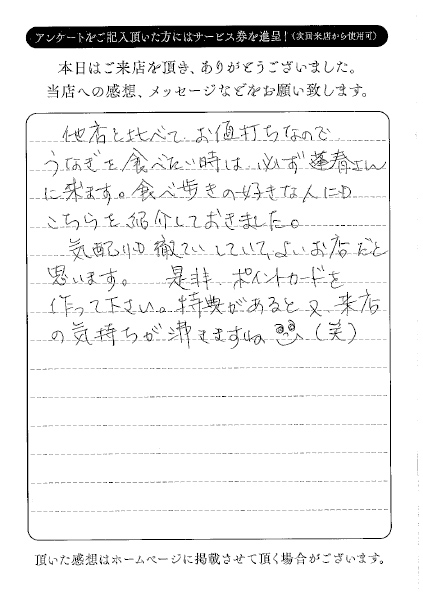 アンケートをご記入頂いた方にはサービス券を進呈!(次回来店から使用可)
本日はご来店を頂き、ありがとうございました。
当店への感想、メッセージなどをお願い致します。
他店と比べて、お値打ちなので、
うなぎを食べたい時は、必ず蓮春さん
に来ます。食べ歩きの好きな人にも
こちらを、紹介しておきました。
気配りも徹ていしていて、よいお店だと
思います。 是非、ポイントカードを
作って下さい。特典があると又、来店
の気持ちが沸きますね (笑)
頂いた感想はホームページに掲載させて頂く場合がございます。